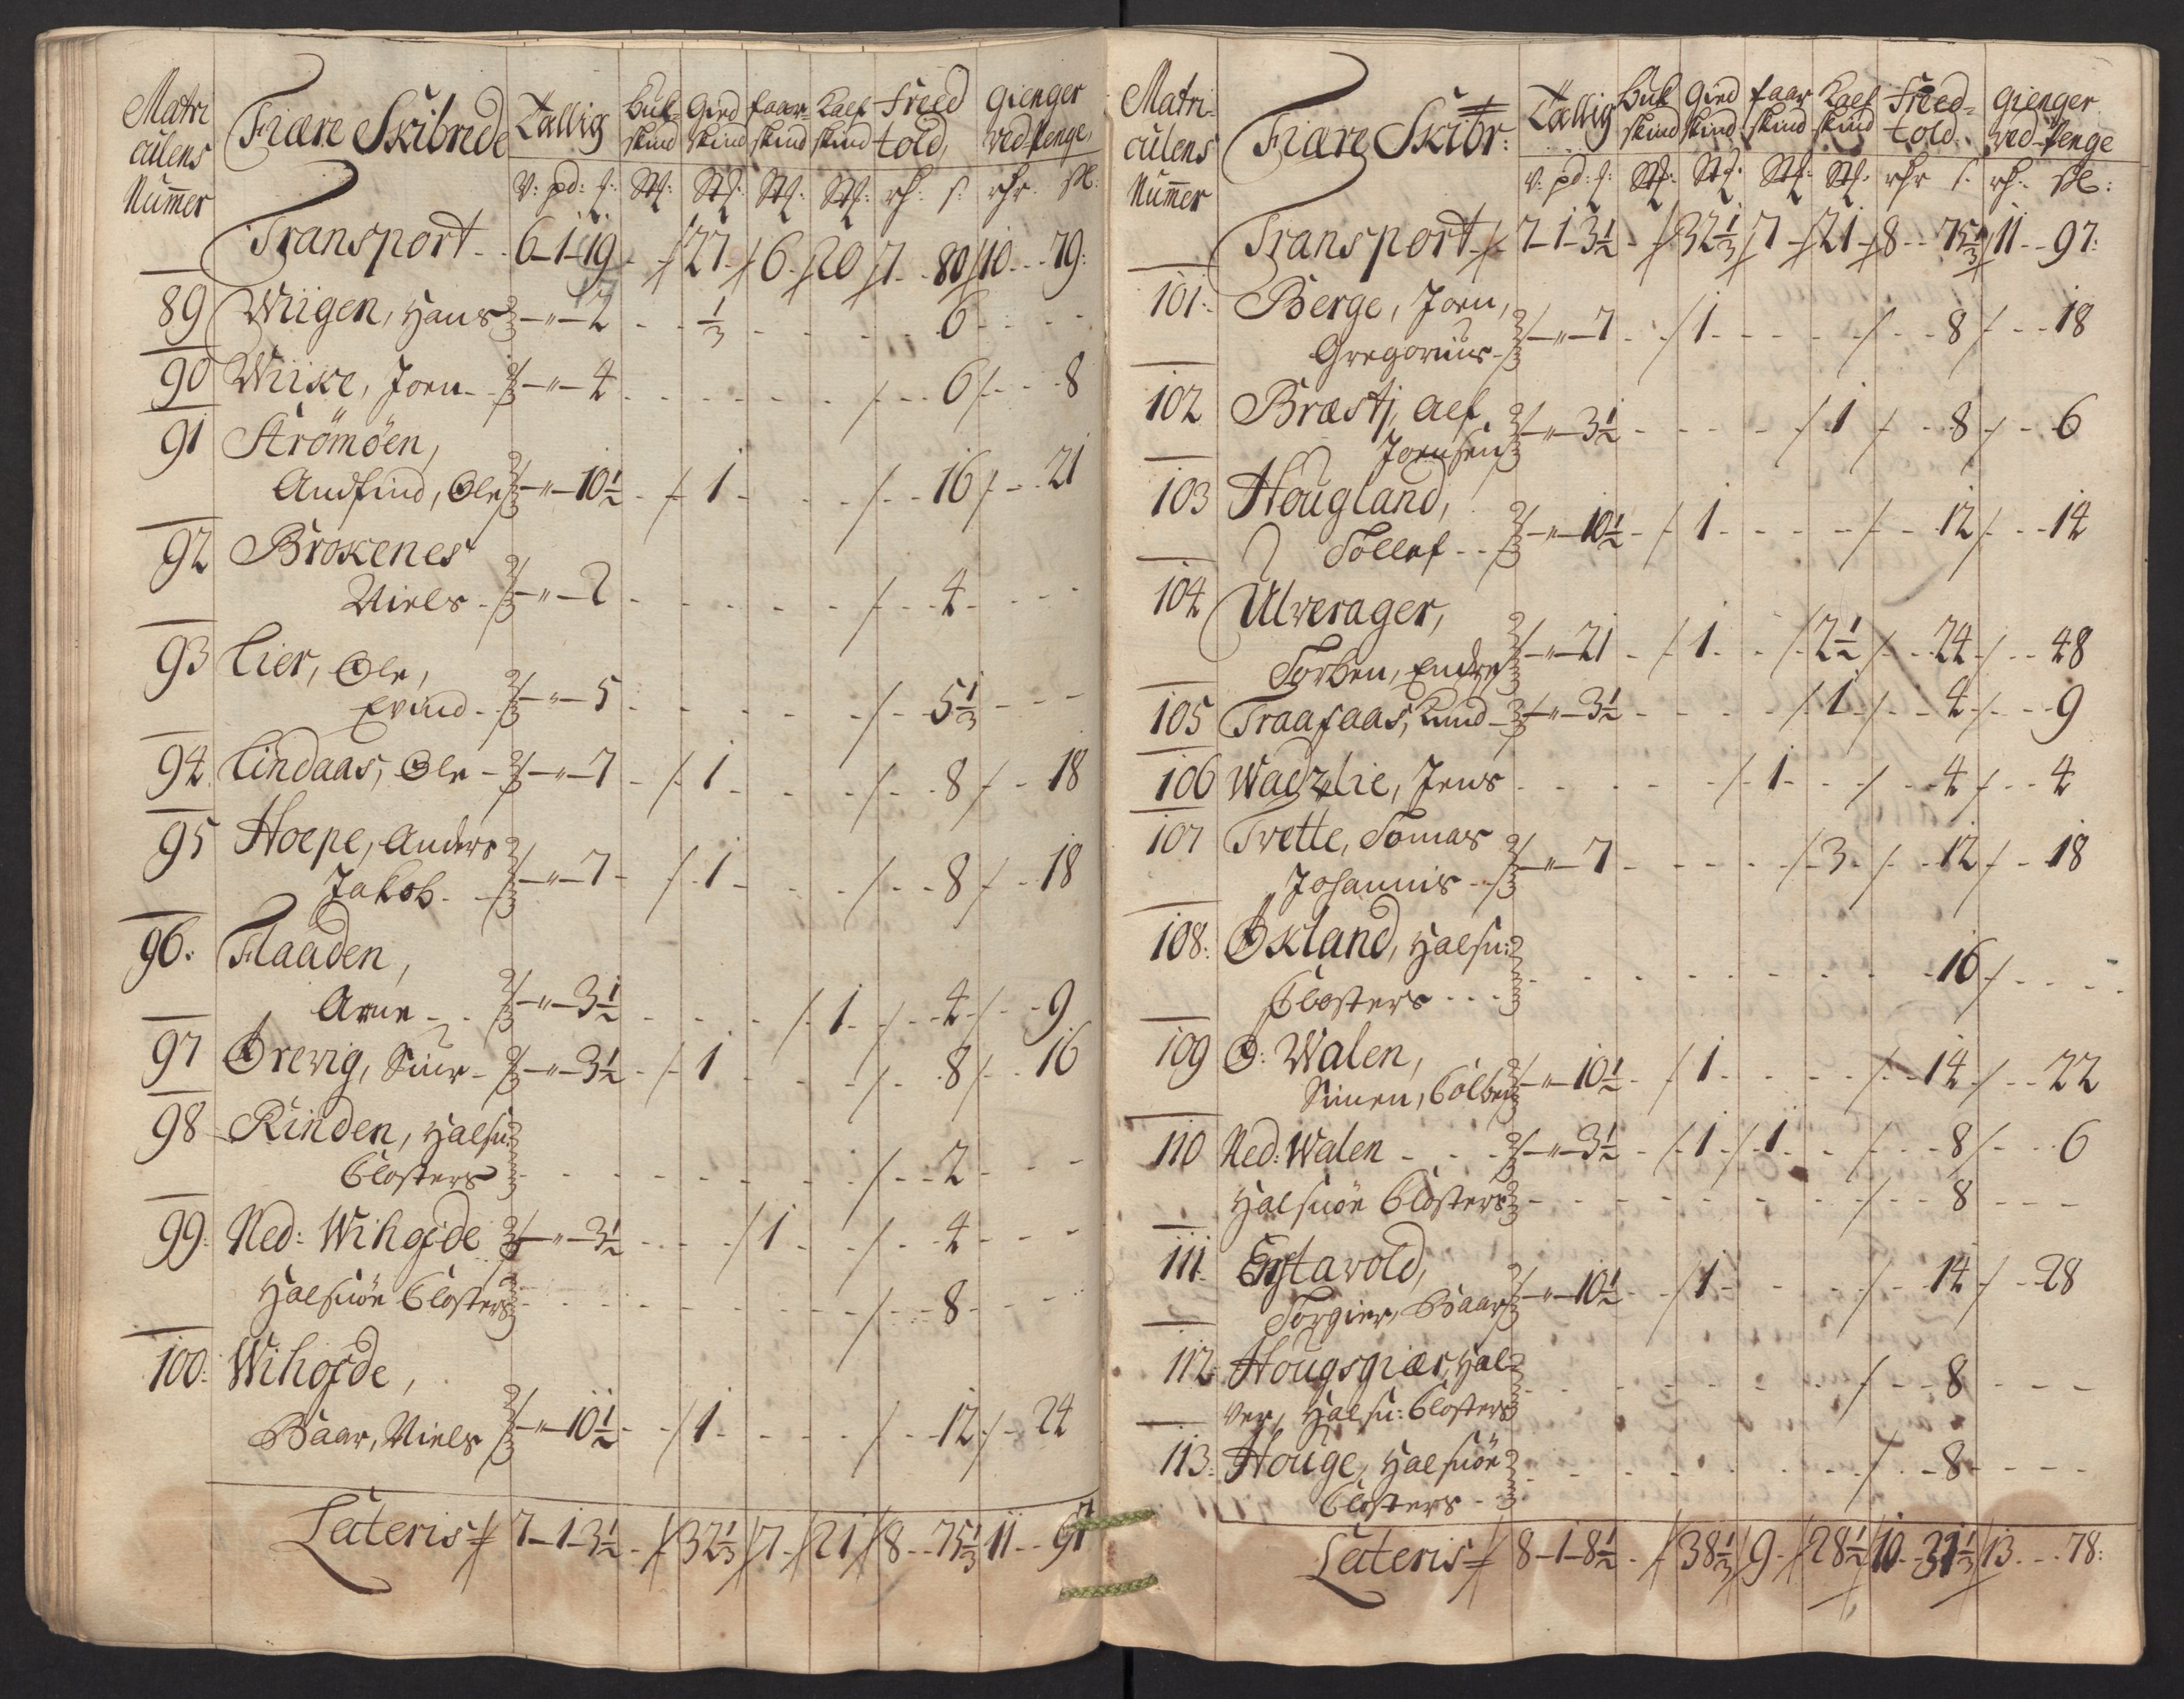 Matri culens Nummer | Fiære Skibrede | Tallig | Buk skind | Gied skind | faar skind | Kalf skind | Freed told | gienger ved penge
v: pd: | Stk: | Stk: | Stk: | Stk: | rh: s: | rhr: sk:
Transport - - 6-1-19 - 27 - 6 - 20 - 7 - - 80 - 10 - - 79:
89 Wiigen, Hans - " - 2 - - 1/3 - - - - 6 - - -
90 Wiike, Joen - - " - 4 - - - - - 6 - - - 8
91 Strömöen,
Andfind, Ole - " - 10 1/2 - 1 - - - - 16 - - 21
92 Brokenes
Niels - " - 2 - - - - - - 4 - - -
93 Lier, Ole,
Evind - - " - 5 - - - - - - 5 1/3 - -
94 Lindaas, Ole - " - 7 - 1 - - - - 8 - - 18
95 Hoepe, Anders
Jakob - - " - 7 - 1 - - - - 8 - - 18
96: Flaaden,
Arne - - " - 3 1/2 - - - 1 - - 4 - - 9
97 Örevig, Siur - " - 3 1/2 - 1 - - - 8 - - 16
98 Rinden, Halsn:
Closters - - - - - - - 2 - - -
99: Ned: Wihofde - " - 3 1/2 - - - 1 - - - 4 - - -
Halsnöe Closters - - - - - - - 8 - - -
100: Wihofde,
Baar, Niels - " - 10 1/2 - 1 - - - - 12 - - 24
Lateris 7-1-3 1/2 - 32 1/3 7 - 21 8 - - 75 1/3 11 - - 97
Matri- culens Nummer | Fiære Skibr: | Tallig | Buk skind | Gied skind | faar skind | Kalf skind | Freed- told: | gienger ved penge
v: pd: | Stk: | Stk: | Stk: | Stk: | rhr s: | rh: sk:
Transport 7-1-3 1/2 - 32 1/3 7 - 21 - 8 - - 75 1/3 11 - - 97:
101: Berge, Joen,
Gregorius - " - 7 - 1 - - - - - - 8 - - 18
102 Bræstj, Alf
Joensen - " - 3 1/2 - - - - 1 - - 8 - - 6
103 Hougland,
Tollef - - " - 10 1/2 - 1 - - - - - 12 - - 14
104 Ulverager,
Torben, Endre - " - 21 - 1 - - 2 1/2 - - 24 - - 48
105 Traafaas, Knud - " - 3 1/2 - - - - 1 - - 4 - - 9
106 Wadzlie, Jens - - - - - 1 - - - 4 - - 4
107 Tvette, Tomas
Johannis - - " - 7 - - - - - 3 - - 12 - - 18
108: Ökland, Halsn:
Closters - - - - - - - - - 16 - - - -
109 O: Walen,
Simen, Colben - " - 10 1/2 - 1 - - - - - 14 - - 22
110 Ned: Walen - - - " - 3 1/2 - 1 - 1 - - - 8 - - 6
Halsnöe Closters - - - - - - - 8 - - -
111: Eystavold,
Torgier, Baar - " - 10 1/2 - 1 - - - - - 14 - - 28
112: Hougsgiær, Hal-
ver, Halsn: Closters - - - - - - 8 - - -
113: Houge, Halsnöe
Closters - - - - - - - - 8 - - - -
Lateris 8-1-8 1/2 - 38 1/3 9 - 28 1/2 10 - 31 1/3 13 - - 78: